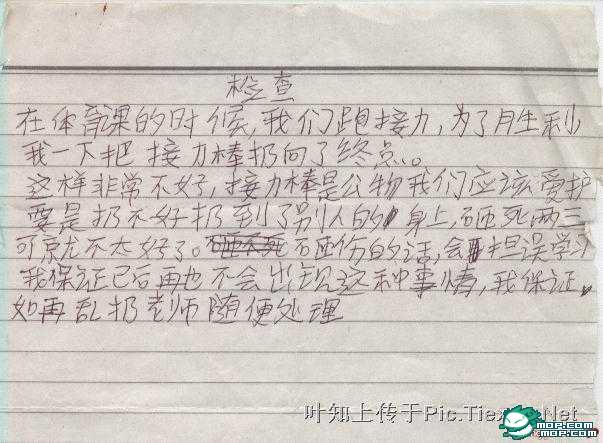 检查
在体育课的时候,我们跑接力,为了胜利
我一下把接力棒扔向了终点。
这样非常不好,接力棒是公物我们应该爱护
要是扔不好扔到了别人的身上,砸死两三
可就不太好了。砸伤的话,会担误学习
我保证已后再也不会出现这种事情,我保证
如再乱扔老师随便处理
叶知上传于Pic.Tiexue.Net
mop.com
mop.com